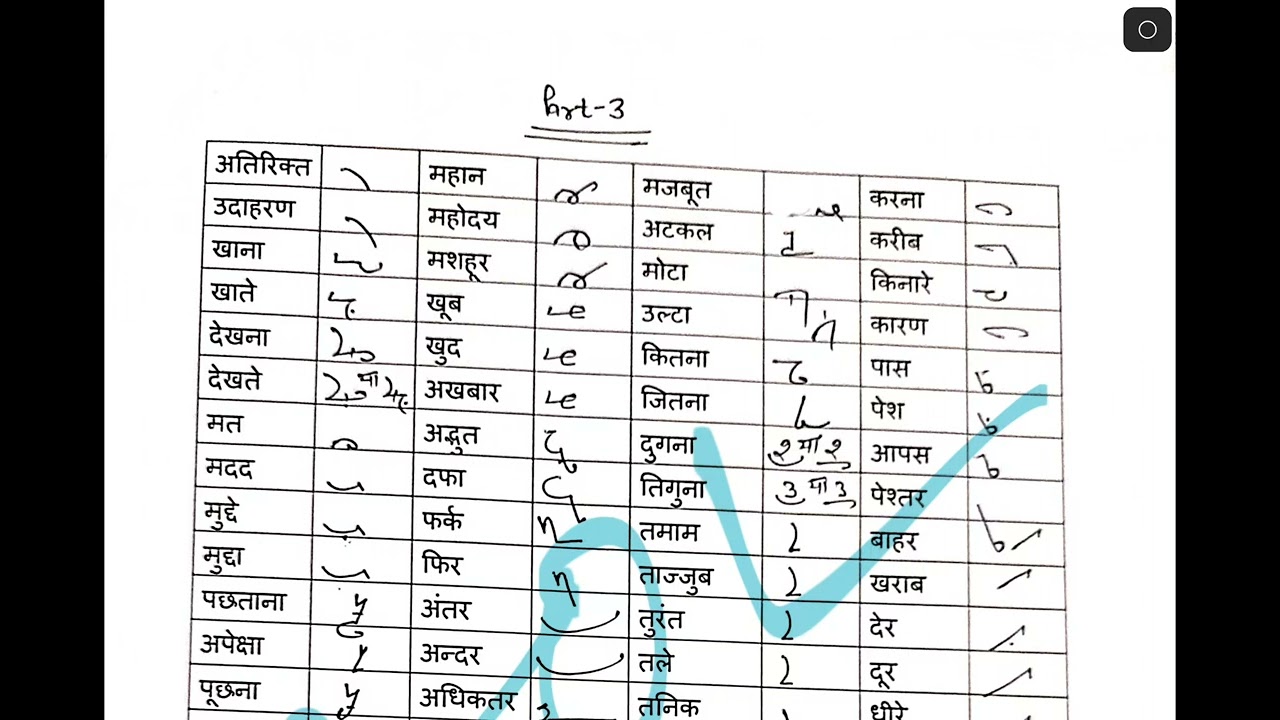 Part-3
अतिरिक्त महान मजबूत करना
उदाहरण महोदय अटकल करीब
खाना मशहूर मोटा किनारे
खाते खूब उल्टा कारण
देखना खुद कितना पास
देखते या अखबार जितना पेश
मत अद्भुत दुगना २ या २ आपस
मदद दफा तिगुना 3 या 3 पेश्तर
मुद्दे फर्क तमाम बाहर
मुद्दा फिर ताज्जुब खराब
पछताना अंतर तुरंत देर
अपेक्षा अन्दर तले दूर
पूछना अधिकतर तनिक धीरे